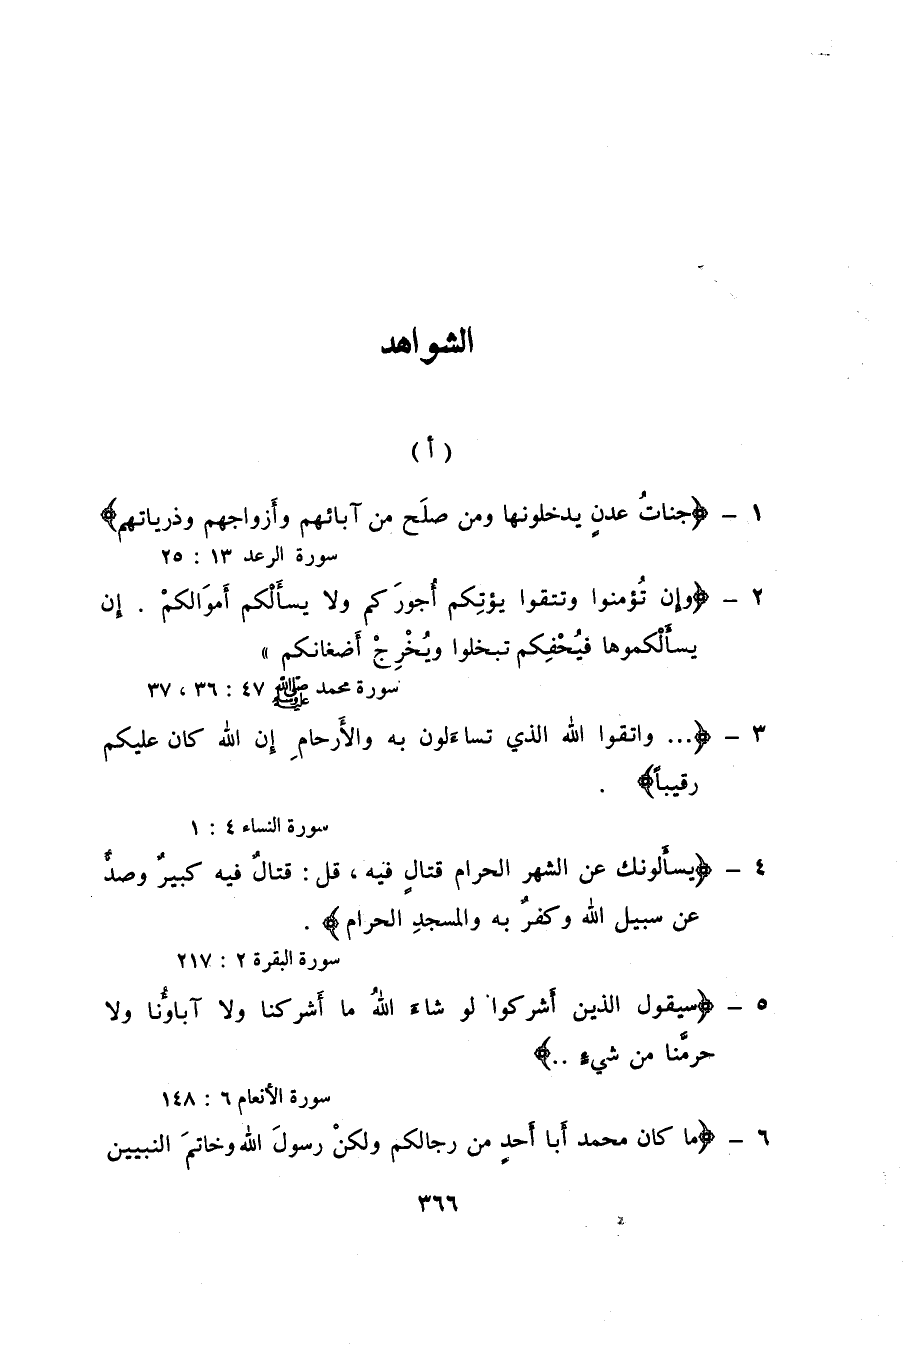 الشواهد
( أ )
١ – ﴿جناتُ عدنٍ يدخلونها ومن صلَح من آبائهم وأَزواجهم وذرياتهم﴾
سورة الرعد ١٣ : ٢٥
٢ – ﴿وإِن تُؤمنوا وتتقوا يؤتِكم أُجورَكم ولا يسأَلْكم أَموَالكمْ . إِن
يسأَلْكموها فيُحْفِكم تبخلوا ويُخْرِجْ أَضغانكم »
سورة محمد ﷺ ٤٧ : ٣٦ ، ٣٧
٣ – ﴿... واتقوا الله الذي تساءَلون به والأَرحامِ إِن الله كان عليكم
رقيباً﴾ .
سورة النساء ٤ : ١
٤ – ﴿يسأَلونك عن الشهر الحرام قتالٍ فيه ، قل : قتالٌ فيه كبيرٌ وصدٌّ
عن سبيل الله وكفرٌ به والمسجدِ الحرام﴾ .
سورة البقرة ٢ : ٢١٧
٥ – ﴿سيقول الذين أَشركوا لو شاءَ اللهُ ما أَشركنا ولا آباوُنا ولا
حرمَّنا من شيءٍ ..﴾
سورة الأنعام ٦ : ١٤٨
٦ – ﴿ما كان محمد أَبا أَحدٍ من رجالكم ولكنْ رسولَ الله وخاتمَ النبيين
٣٦٦